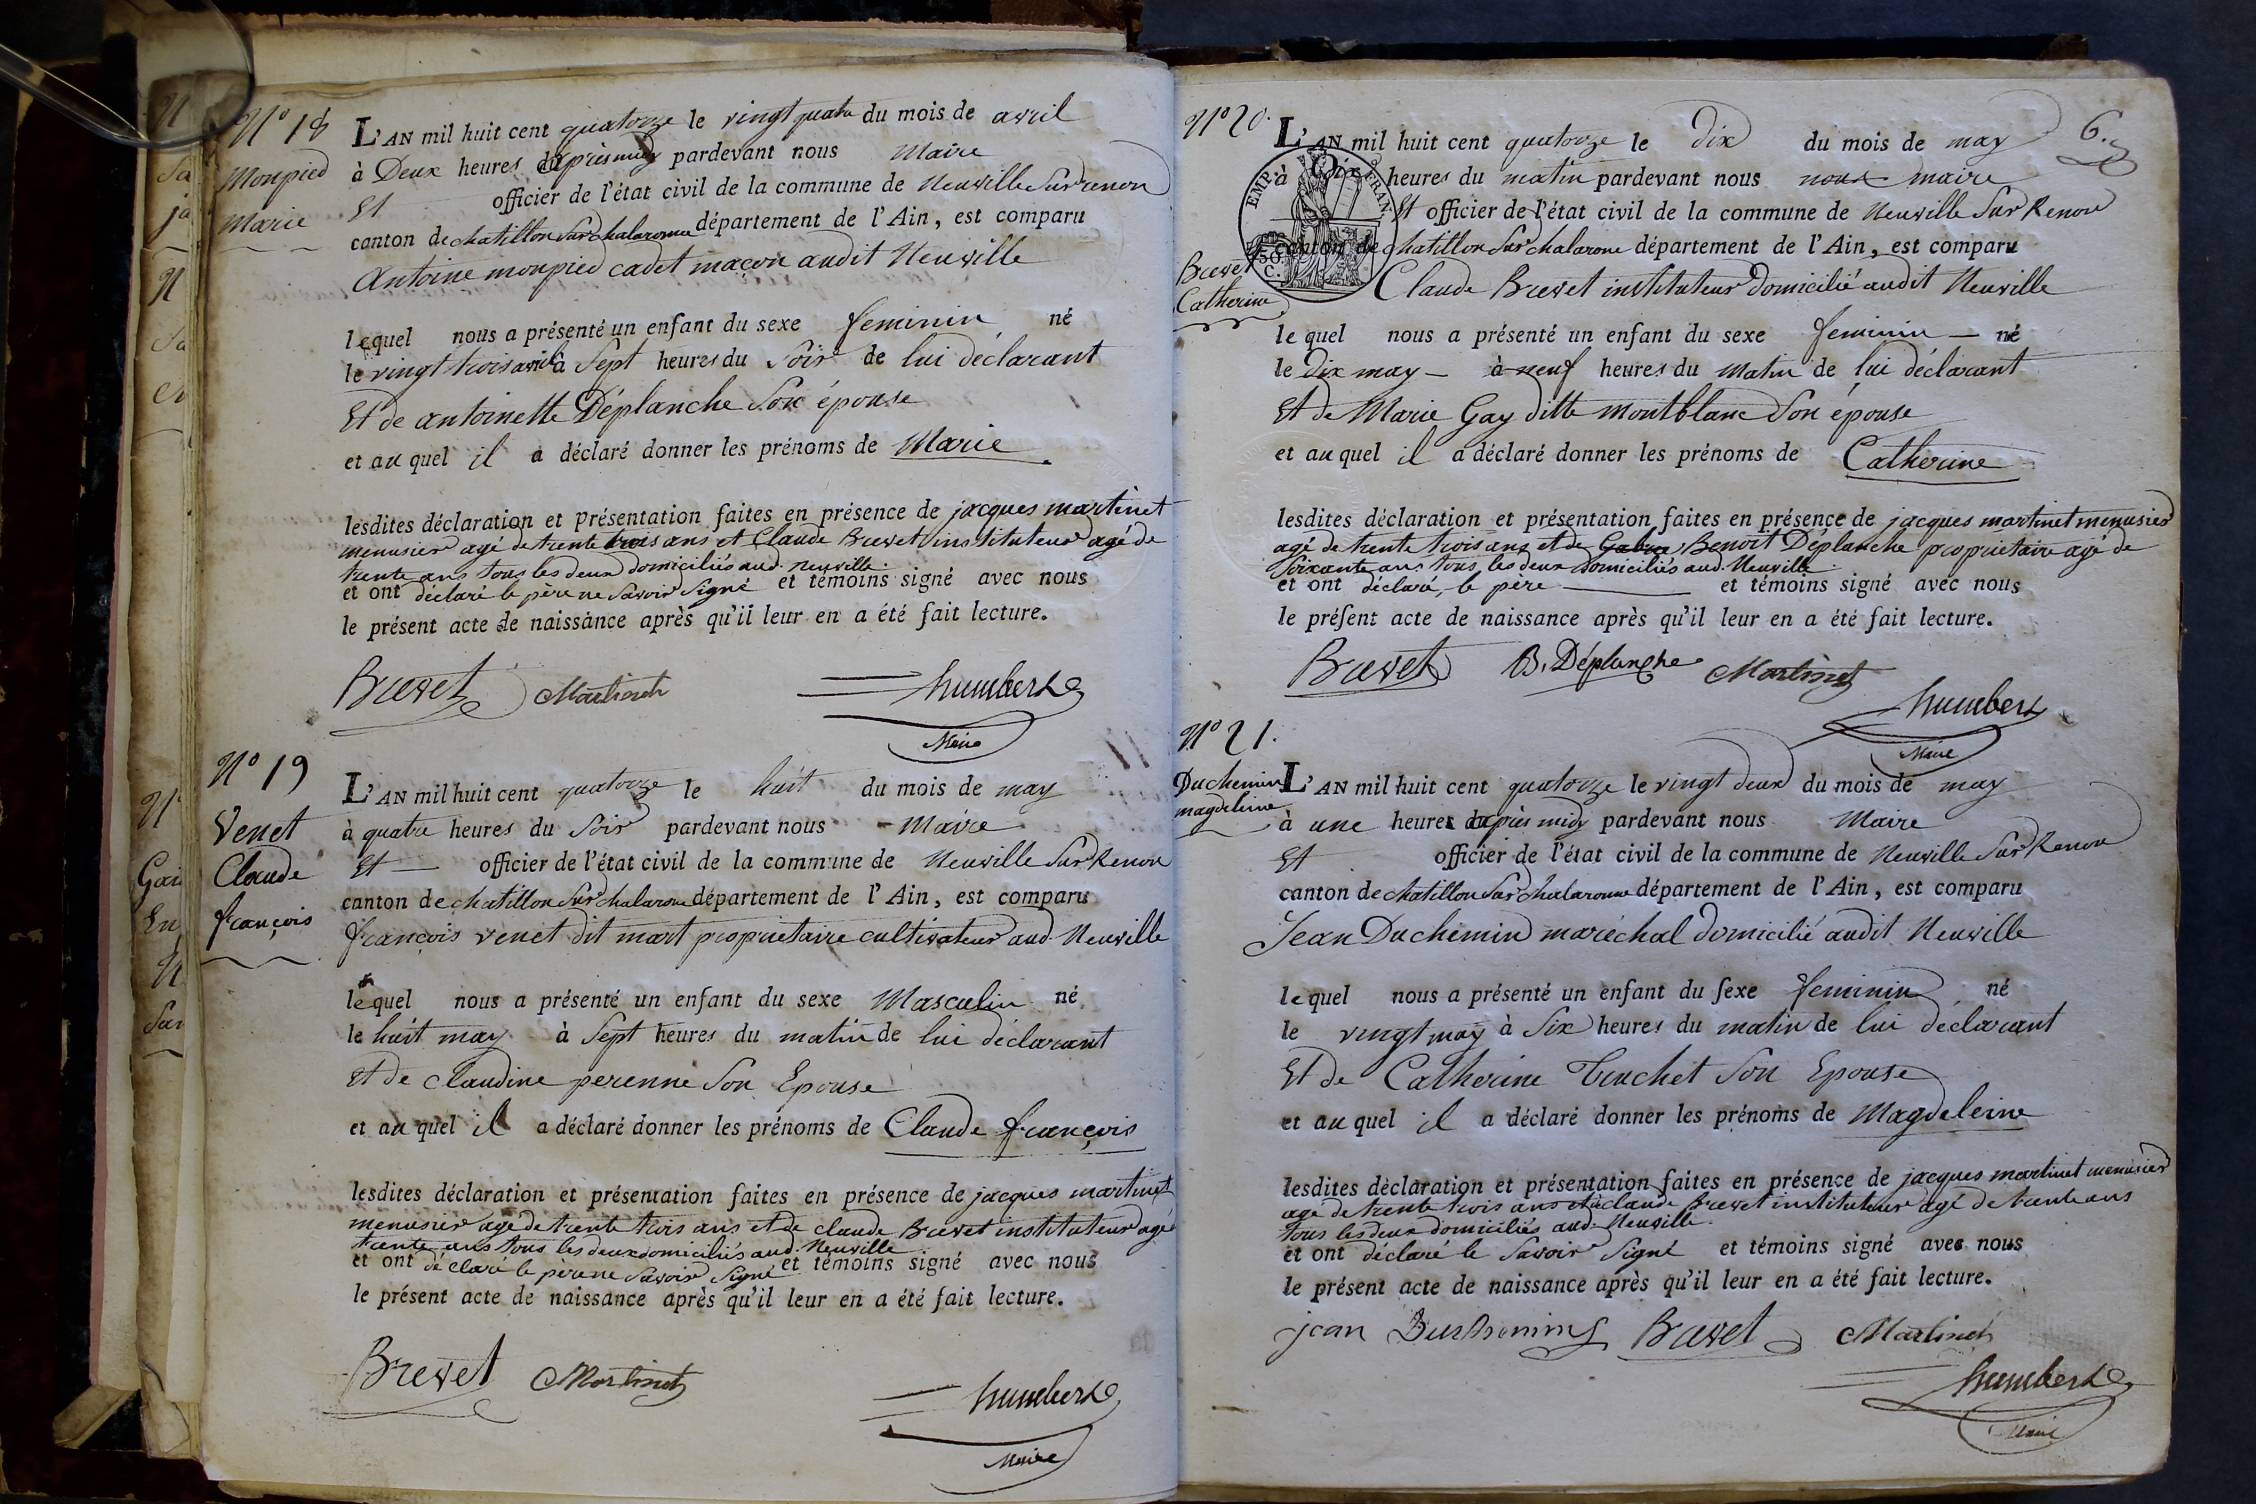 N° 18
Monpied
Marie
L'AN mil huit cent quatorze le vingt quatre du mois de avril
à Deux heures après midy pardevant nous Maire
Et officier de l'état civil de la commune de Neuville Sur renon
canton de chatillon Sur chalaronne département de l'Ain, est comparu
Antoine monpied cadet maçon audit Neuville
lequel nous a présenté un enfant du sexe feminin né
le vingt trois avril à Sept heures du Soir de lui déclarant
Et de antoinette Déplanche Son épouse
et au quel il a déclaré donner les prénoms de Marie
lesdites déclaration et présentation faites en présence de jacques martinet
menusier agé de trente trois ans et Claude Brevet instituteur agé de
trente ans tous les deux domiciliés aud. neuville.
et ont déclaré le père ne Savoir Signé et témoins signé avec nous
le présent acte de naissance après qu'il leur en a été fait lecture.
Brevet Martinet humbert
Maire
N° 19
Venet
Claude
françois
L'AN mil huit cent quatorze le huit du mois de may
à quatre heures du Soir pardevant nous Maire
Et officier de l'état civil de la commune de Neuville Sur Renon
canton de chatillon Sur chalarone département de l'Ain, est comparu
françois venet dit mart proprietaire cultivateur aud. Neuville
lequel nous a présenté un enfant du sexe Masculin né
le huit may à Sept heures du matin de lui déclarant
Et de claudine perenne Son Epouse
et au quel il a déclaré donner les prénoms de Claude françois
lesdites déclaration et présentation faites en présence de jacques martinet
menusier agé de trente trois ans et de claude Brevet instituteur agé
trente ans tous les deux domiciliés aud. Neuville
et ont déclaré le père ne Savoir Signé et témoins signé avec nous
le présent acte de naissance après qu'il leur en a été fait lecture.
Brevet Martinet humbert
Maire
6.
N° 20.
Brevet
Catherine
EMP. FRAN.
50 C.
L'AN mil huit cent quatorze le Dix du mois de may
à Dix heures du matin pardevant nous nous maire
Et officier de l'état civil de la commune de Neuville Sur Renon
canton de chatillon Sur chalarone département de l'Ain, est comparu
Claude Brevet instituteur Domicilié audit Neuville
lequel nous a présenté un enfant du sexe feminin né
le Dix may à neuf heures du Matin de lui déclarant
Et de Marie Gay ditte montblanc Son épouse
et au quel il a déclaré donner les prénoms de Catherine
lesdites déclaration et présentation faites en présence de jacques martinet menusier
agé de trente trois ans et de Benoit Déplanche proprietaire agé de
Soixante ans tous les deux domiciliés aud. Neuville
et ont déclaré, le père et témoins signé avec nous
le préſent acte de naissance après qu'il leur en a été fait lecture.
Brevet B. Déplanche Martinet
humbert
Maire
N° 21.
Duchemin
magdeleine
L'AN mil huit cent quatorze le vingt deux du mois de may
à une heures après midy pardevant nous Maire
Et officier de l'état civil de la commune de Neuville Sur Renon
canton de chatillon Sur chalaronne département de l'Ain, est comparu
Jean Duchemin maréchal domicilié audit Neuville
lequel nous a présenté un enfant du ſexe feminin né
le vingt may à Six heures du matin de lui déclarant
Et de Catherine Truchet Son Epouse
et au quel il a déclaré donner les prénoms de Magdeleine
lesdites déclaration et présentation faites en présence de jacques martinet menusier
agé de trente trois ans et de claude Brevet instituteur agé de trente ans
tous les deux domiciliés aud. Neuville.
et ont déclaré le Savoir Signé et témoins signé avec nous
le présent acte de naissance après qu'il leur en a été fait lecture.
jean Brevet Martinet
humbert
Maire